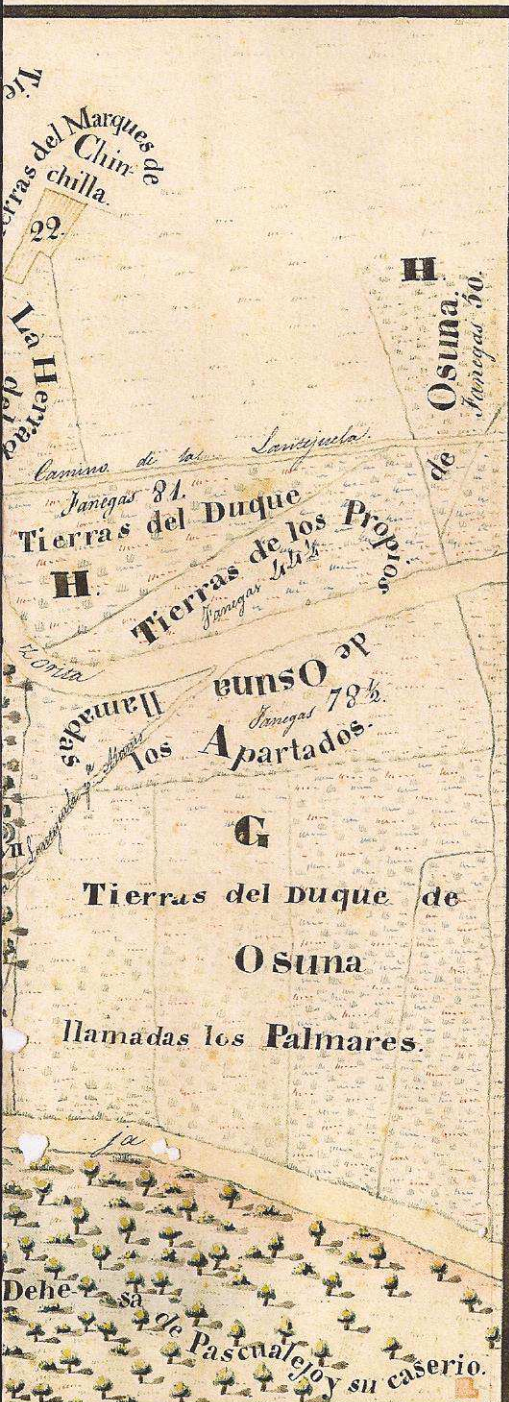 Tie
erras del Marques de
Chin-
chilla.
22.
H.
Osuna.
Fanegas 50.
de
La Herrad
del
Camino de la Lantejuela.
Fanegas 81.
Tierras del Duque
H.
Tierras de los Propios
Fanegas 44½
Zorita
de Osuna
llamadas
los Apartados.
Fanegas 78½
Lantejuela pª
G
Tierras del Duque de
Osuna
llamadas los Palmares.
ja
Dehe- sa de Pascualejo y su caserio.